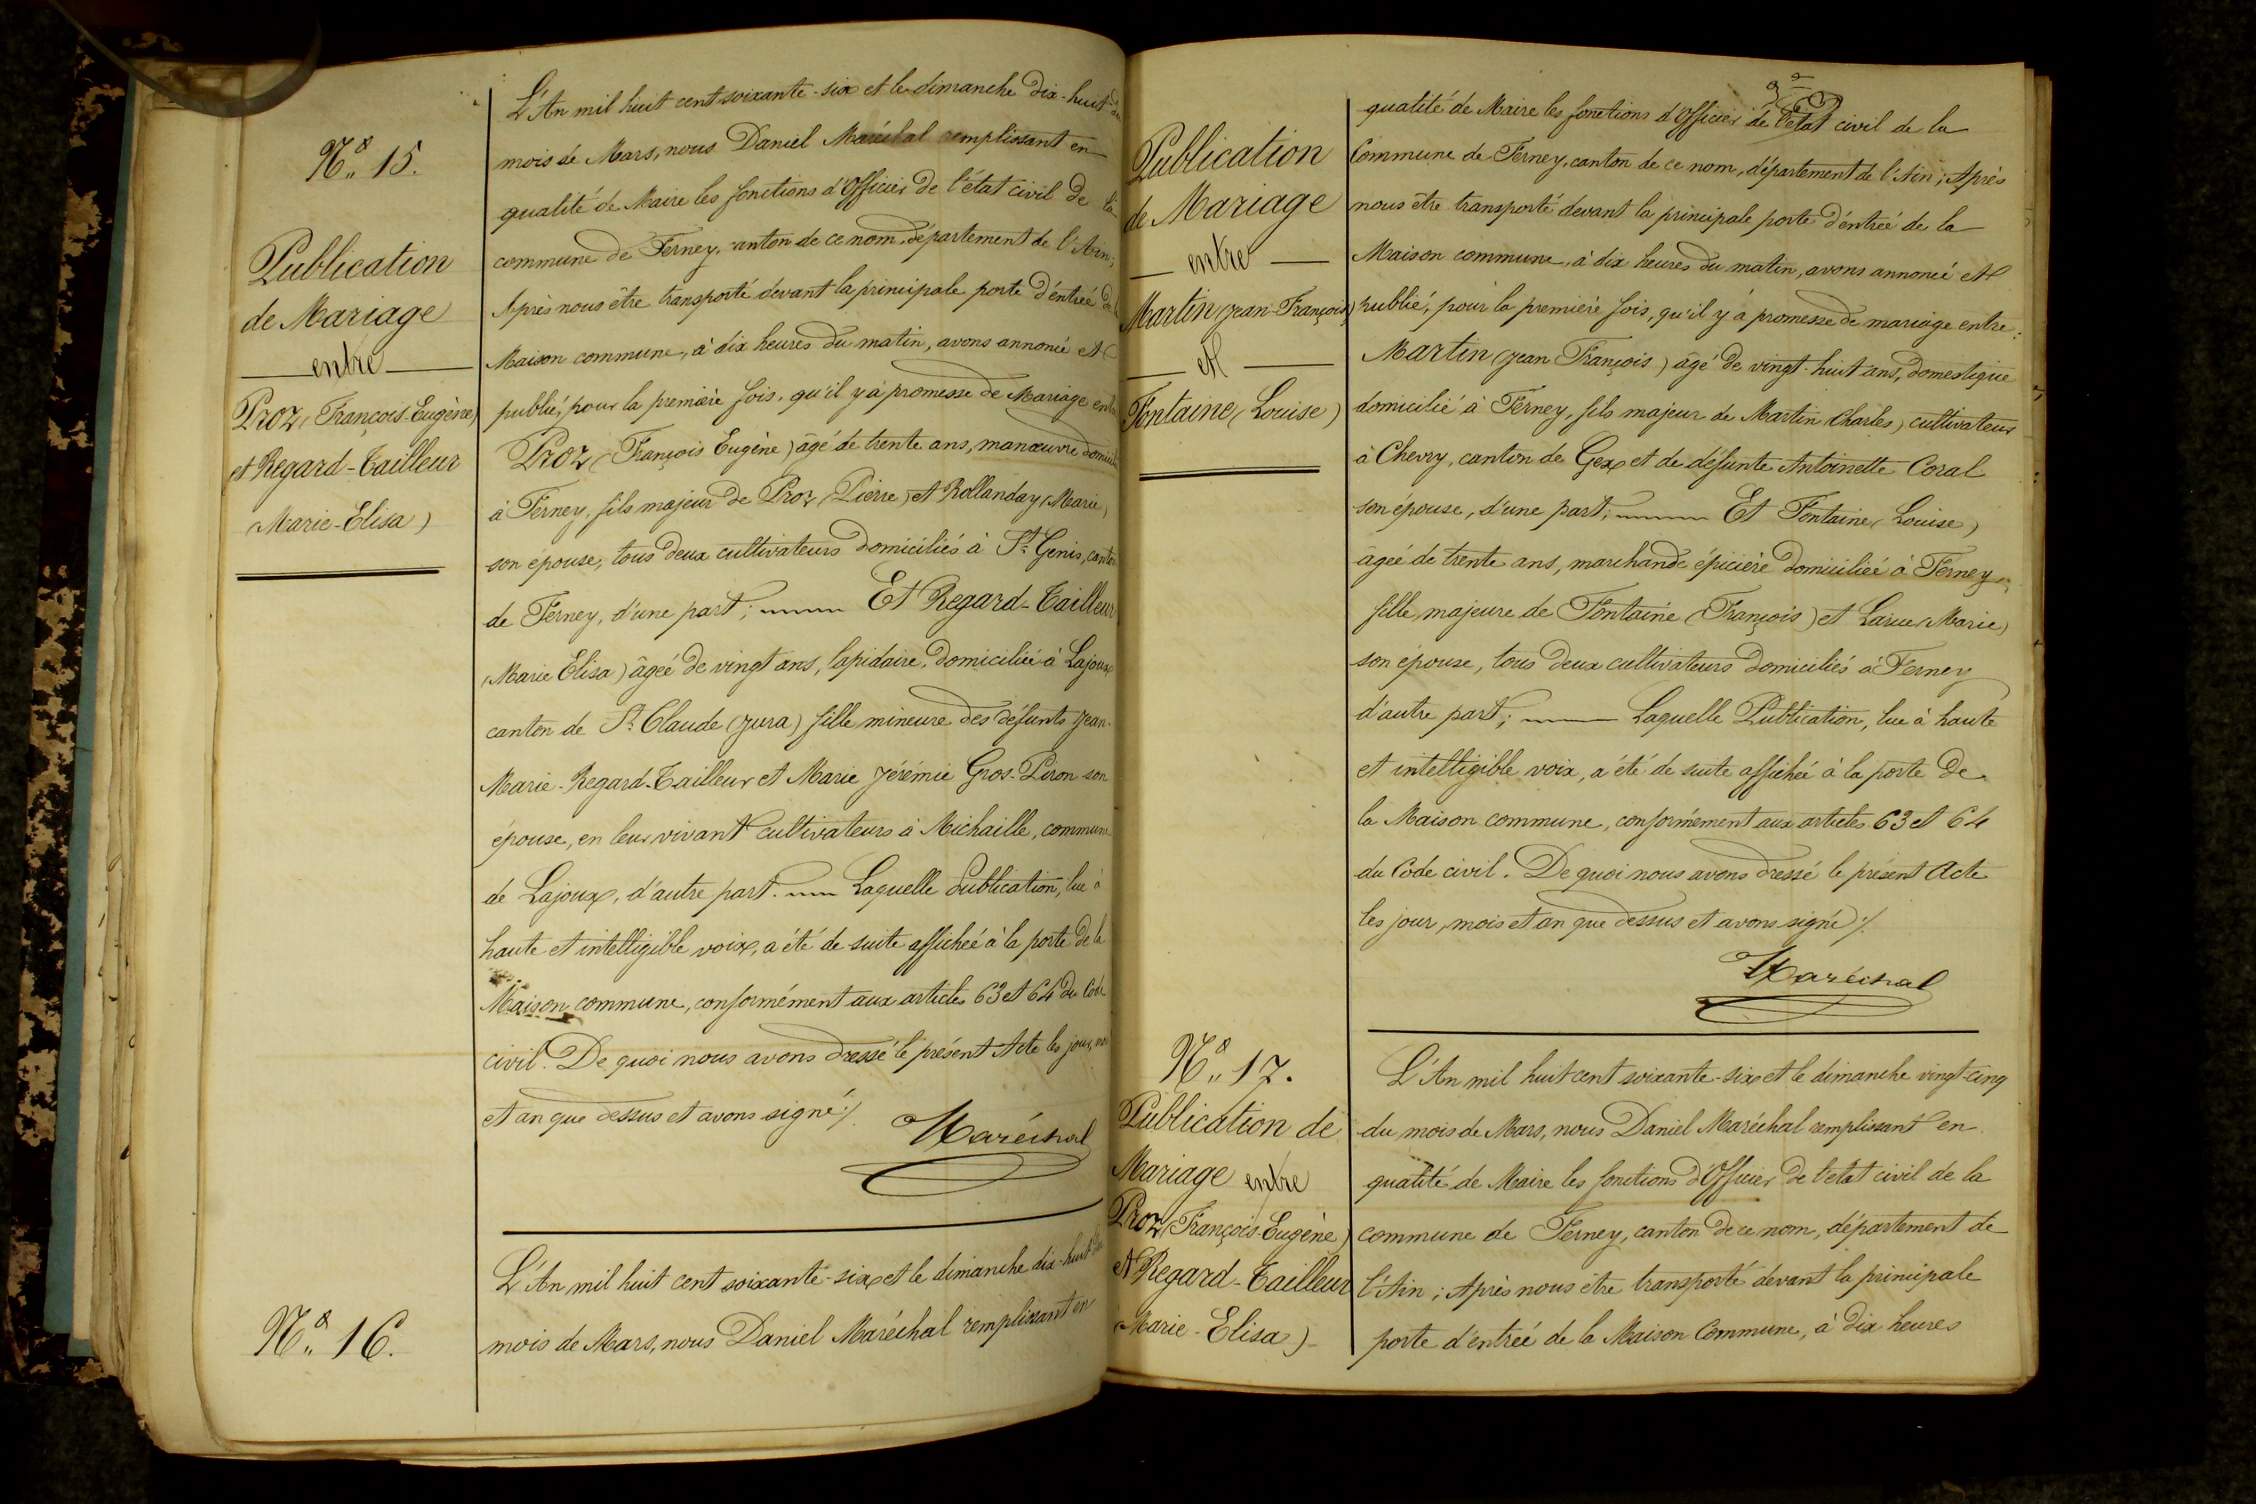 N.º 15.
Publication
de Mariage
entre
Proz (François-Eugène)
et Regard-Tailleur
(Marie-Elisa)
L'An mil huit cent soixante-six et le dimanche dix-huit du
mois de Mars, nous Daniel Maréchal remplissant en
qualité de Maire les fonctions d'Officier de l'état civil de la
commune de Ferney, canton de ce nom, département de l'Ain;
Après nous être transporté devant la principale porte d'entrée de la
Maison commune, à dix heures du matin, avons annoncé et
publié, pour la première fois, qu'il y a promesse de Mariage entre
Proz (François Eugène) âgé de trente ans, manœuvre domicilié
à Ferney, fils majeur de Proz (Pierre) et Rollanday (Marie)
son épouse, tous deux cultivateurs domiciliés à St Genis, canton
de Ferney, d'une part; Et Regard-Tailleur
(Marie Elisa) âgée de vingt ans, lapidaire, domiciliée à Lajoux
canton de St Claude (Jura) fille mineure des défunts Jean-
Marie-Regard-Tailleur et Marie Jérémie Gros-Piron son
épouse, en leur vivant cultivateurs à Michaille, commune
de Lajoux, d'autre part. Laquelle Publication, lue à
haute et intelligible voix, a été de suite affichée à la porte de la
Maison commune, conformément aux articles 63 et 64 du Code
civil. De quoi nous avons dressé le présent Acte les jour, mois
et an que dessus et avons signé ./.
Maréchal
N.º 16.
L'An mil huit cent soixante-six et le dimanche dix-huit du
mois de Mars, nous Daniel Maréchal remplissant en
Publication
de Mariage
entre
Martin (Jean-François)
et
Fontaine (Louise)
qualité de Maire les fonctions d'Officier de l'état civil de la
Commune de Ferney, canton de ce nom, département de l'Ain; Après
nous être transporté devant la principale porte d'entrée de la
Maison commune, à dix heures du matin, avons annoncé et
publié, pour la première fois, qu'il y a promesse de mariage entre:
Martin (Jean François) âgé de vingt-huit ans, domestique
domicilié à Ferney, fils majeur de Martin (Charles) cultivateur
à Chevry, canton de Gex, et de défunte Antoinette Coral
son épouse, d'une part; Et Fontaine (Louise)
âgée de trente ans, marchande épicière domiciliée à Ferney,
fille majeure de Fontaine (François) et Larue (Marie)
son épouse, tous deux cultivateurs domiciliés à Ferney
d'autre part; Laquelle Publication, lue à haute
et intelligible voix, a été de suite affichée à la porte de
la Maison commune, conformément aux articles 63 et 64
du Code civil. De quoi nous avons dressé le présent Acte
les jour, mois et an que dessus et avons signé ./.
Maréchal
N.º 17.
Publication de
Mariage entre
Proz (François-Eugène)
et Regard-Tailleur
(Marie-Elisa)
L'An mil huit cent soixante-six et le dimanche vingt-cinq
du mois de Mars, nous Daniel Maréchal remplissant en
qualité de Maire les fonctions d'Officier de l'état civil de la
commune de Ferney, canton de ce nom, département de
l'Ain; Après nous être transporté devant la principale
porte d'entrée de la Maison Commune, à dix heures